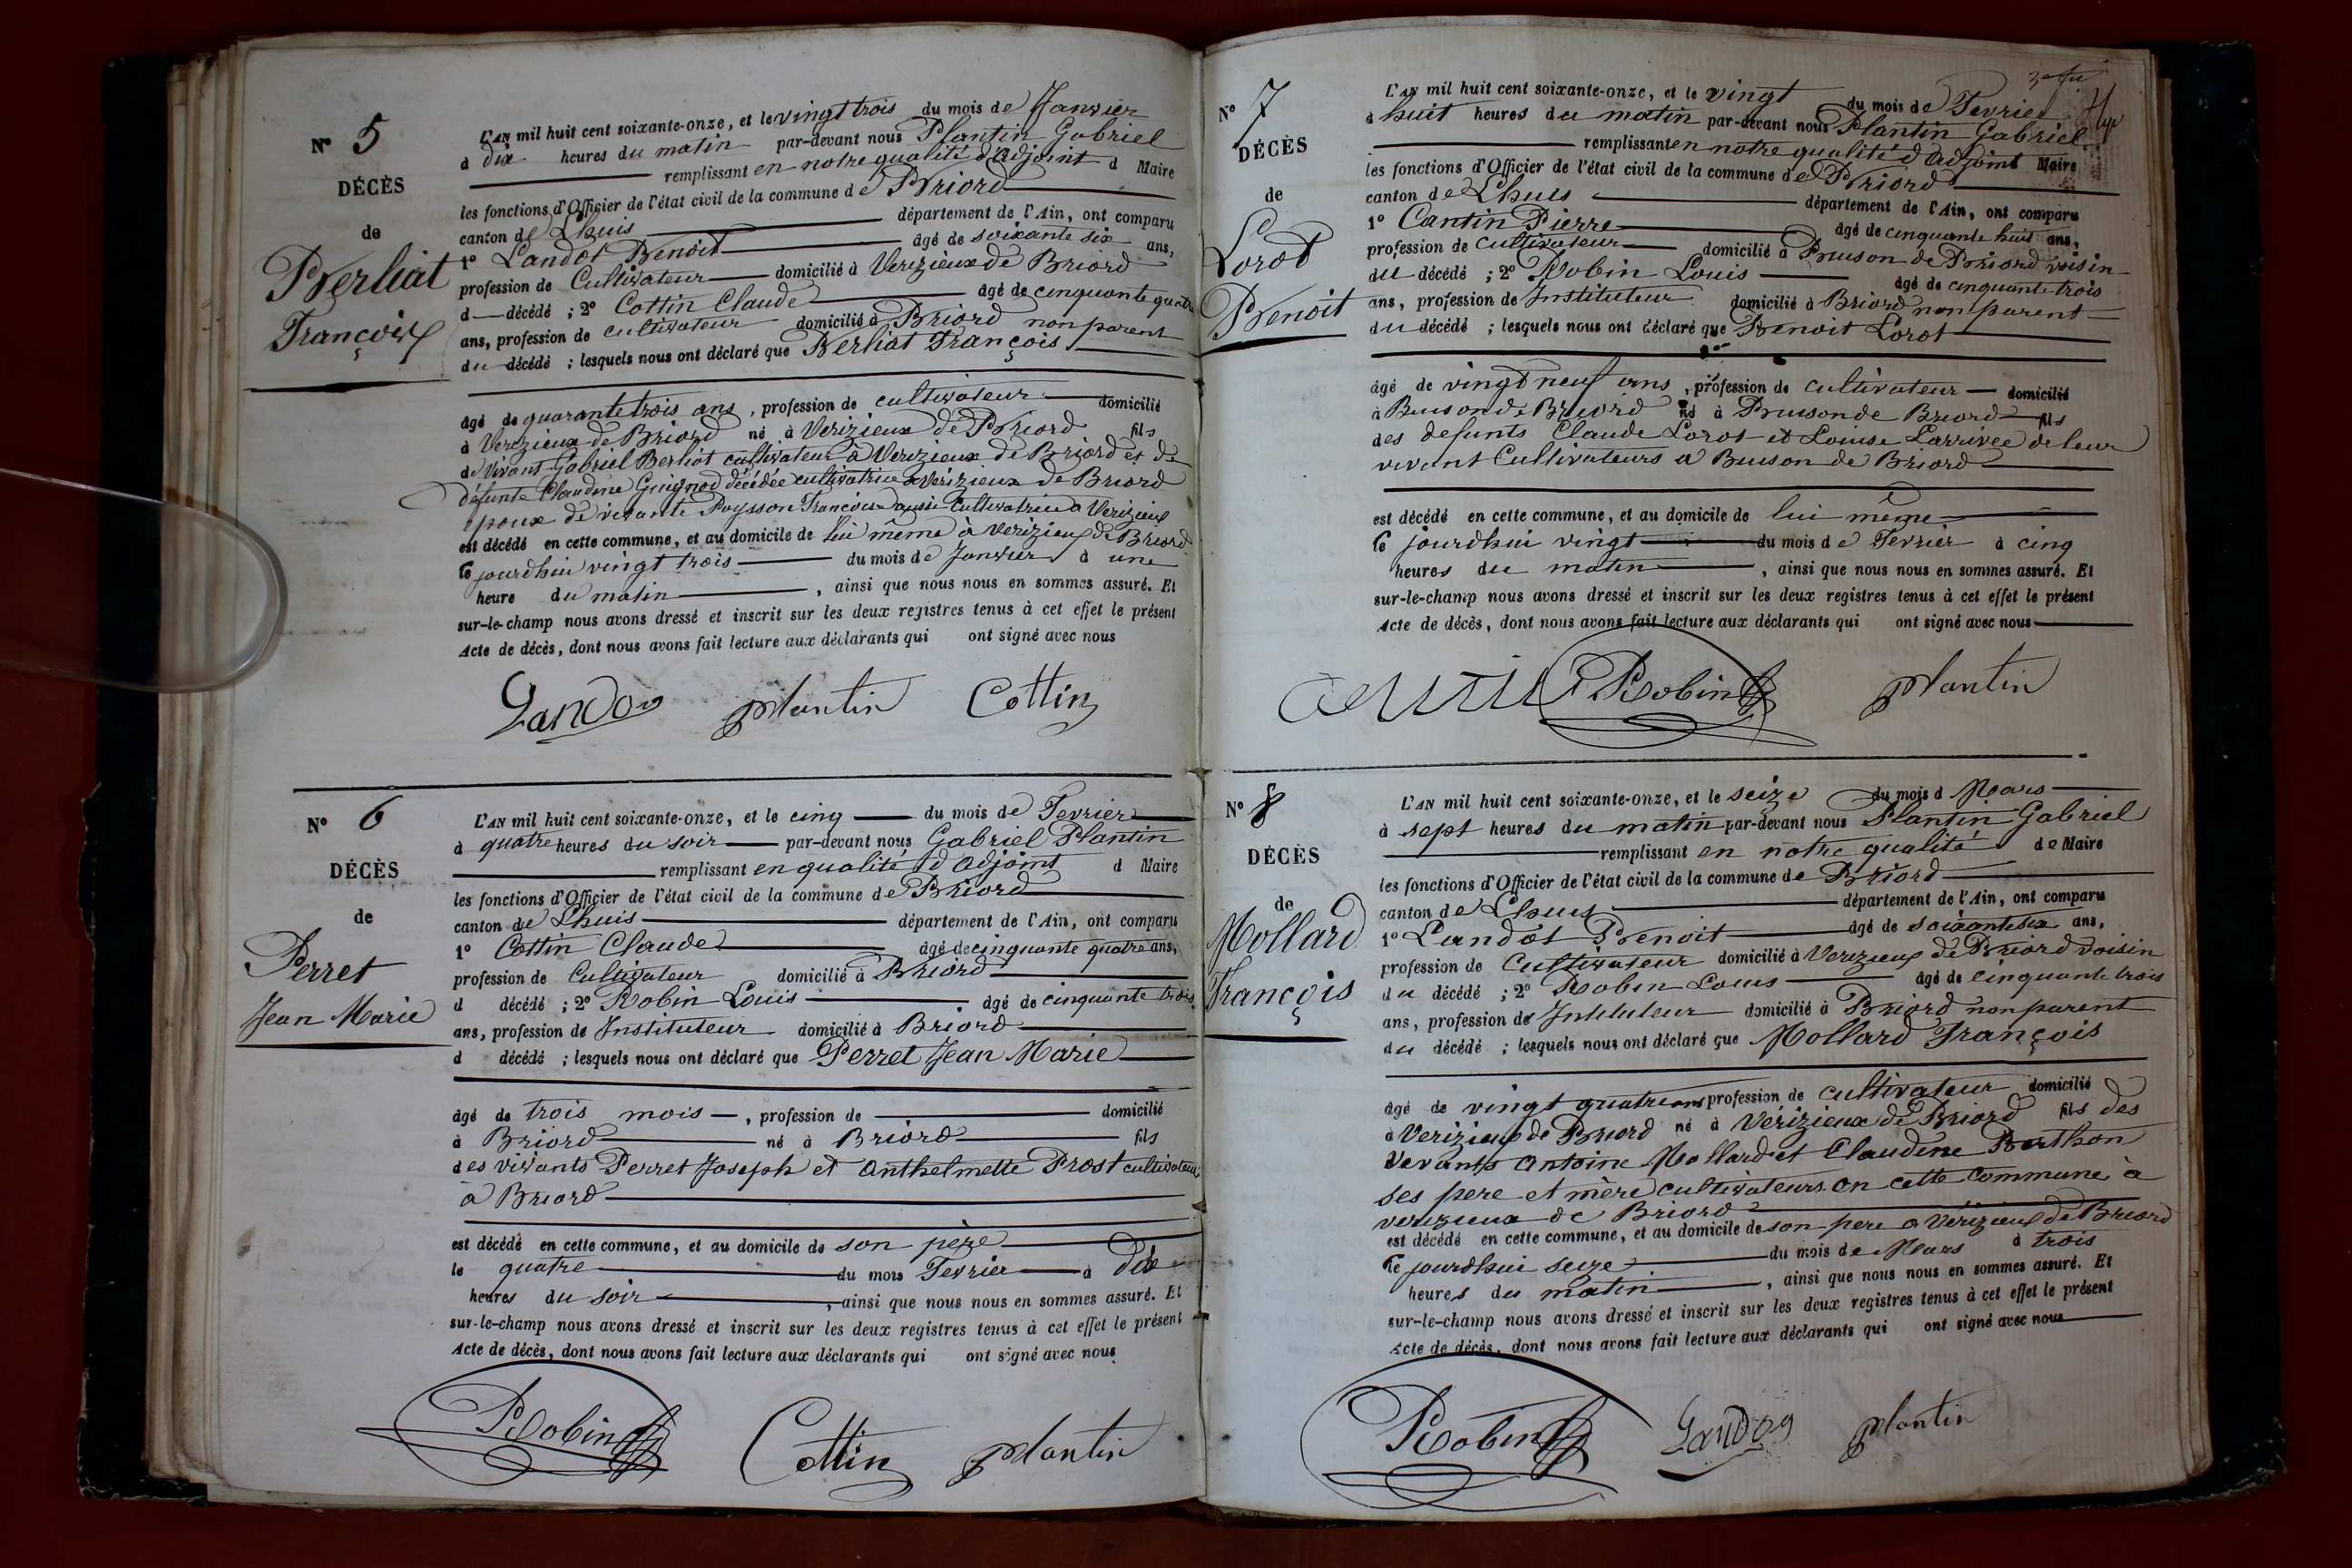 N° 5
DÉCÈS
de
Berliat
François
L'AN mil huit cent soixante-onze, et le vingt trois du mois de Janvier
à dix heures du matin par-devant nous Plantin Gabriel
remplissant en notre qualité d'adjoint d Maire
les fonctions d'Officier de l'état civil de la commune de Briord
canton de Lhuis département de l'Ain, ont comparu
1° Landot Benoit âgé de soixante six ans,
profession de Cultivateur domicilié à Verizieux de Briord
d décédé ; 2° Cottin Claude âgé de cinquante quatre
ans, profession de cultivateur domicilié à Briord non parent
du décédé ; lesquels nous ont déclaré que Berliat François
âgé de quarante trois ans, profession de cultivateur domicilié
à Verizieux de Briord né à Verizieux de Briord fils
de vivant Gabriel Berliat cultivateur à Verizieux de Briord et de
défunte Claudine Guignod décédée cultivatrice à Verizieux de Briord
époux de vivante Poysson Françoise aussi Cultivatrice à Verizieux
est décédé en cette commune, et au domicile de lui même à Verizieux de Briord
le jourdhui vingt trois du mois de Janvier à une
heure du matin, ainsi que nous nous en sommes assuré. Et
sur-le-champ nous avons dressé et inscrit sur les deux registres tenus à cet effet le présent
Acte de décès, dont nous avons fait lecture aux déclarants qui ont signé avec nous
Landot Plantin Cottin
N° 6
DÉCÈS
de
Perret
Jean Marie
L'AN mil huit cent soixante-onze, et le cinq du mois de Fevrier
à quatre heures du soir par-devant nous Gabriel Plantin
remplissant en qualité d'adjoint d Maire
les fonctions d'Officier de l'état civil de la commune de Briord
canton de Lhuis département de l'Ain, ont comparu
1° Cottin Claude âgé de cinquante quatre ans,
profession de Cultivateur domicilié à Briord
d décédé ; 2° Robin Louis âgé de cinquante trois
ans, profession de Instituteur domicilié à Briord
d décédé ; lesquels nous ont déclaré que Perret Jean Marie
âgé de trois mois, profession de domicilié
à Briord né à Briord fils
des vivants Perret Joseph et Anthelmette Prost cultivateurs
à Briord
est décédé en cette commune, et au domicile de son père
le quatre du mois Fevrier à dix
heures du soir, ainsi que nous nous en sommes assuré. Et
sur-le-champ nous avons dressé et inscrit sur les deux registres tenus à cet effet le présent
Acte de décès, dont nous avons fait lecture aux déclarants qui ont signé avec nous
Robin Cottin Plantin
N° 7
DÉCÈS
de
Lorot
Benoit
L'AN mil huit cent soixante-onze, et le vingt du mois de Fevrier
à huit heures du matin par-devant nous Plantin Gabriel
remplissant en notre qualité d'adjoint Maire
les fonctions d'Officier de l'état civil de la commune de Briord
canton de Lhuis département de l'Ain, ont comparu
1° Cantin Pierre âgé de cinquante huit ans,
profession de cultivateur domicilié à Buison de Briord voisin
du décédé ; 2° Robin Louis âgé de cinquante trois
ans, profession de Instituteur domicilié à Briord non parent
du décédé ; lesquels nous ont déclaré que Benoit Lorot
âgé de vingt neuf ans, profession de cultivateur domicilié
à Buison de Briord né à Buison de Briord fils
des defunts Claude Lorot et Louise Larrivée de leur
vivant Cultivateurs à Buison de Briord
est décédé en cette commune, et au domicile de lui même
le jourdhui vingt du mois de Fevrier à cinq
heures du matin, ainsi que nous nous en sommes assuré. Et
sur-le-champ nous avons dressé et inscrit sur les deux registres tenus à cet effet le présent
Acte de décès, dont nous avons fait lecture aux déclarants qui ont signé avec nous
Robin Plantin
N° 8
DÉCÈS
de
Mollard
François
L'AN mil huit cent soixante-onze, et le seize du mois d Mars
à sept heures du matin par-devant nous Plantin Gabriel
remplissant en notre qualité de Maire
les fonctions d'Officier de l'état civil de la commune de Briord
canton de Lhuis département de l'Ain, ont comparu
1° Landot Benoit âgé de soixante six ans,
profession de Cultivateur domicilié à Verizieux de Briord voisin
du décédé ; 2° Robin Louis âgé de cinquante trois
ans, profession de Instituteur domicilié à Briord non parent
du décédé ; lesquels nous ont déclaré que Mollard François
âgé de vingt quatre ans profession de cultivateur domicilié
à Verizieux de Briord né à Vérizieux de Briord fils des
vivants Antoine Mollard et Claudine Berthon
ses pere et mère cultivateurs en cette Commune à
verizieux de Briord
est décédé en cette commune, et au domicile de son pere à Vérizieux de Briord
le jourdhui seize du mois de Mars à trois
heures du matin, ainsi que nous nous en sommes assuré. Et
sur-le-champ nous avons dressé et inscrit sur les deux registres tenus à cet effet le présent
Acte de décès, dont nous avons fait lecture aux déclarants qui ont signé avec nous
Robin Landot Plantin